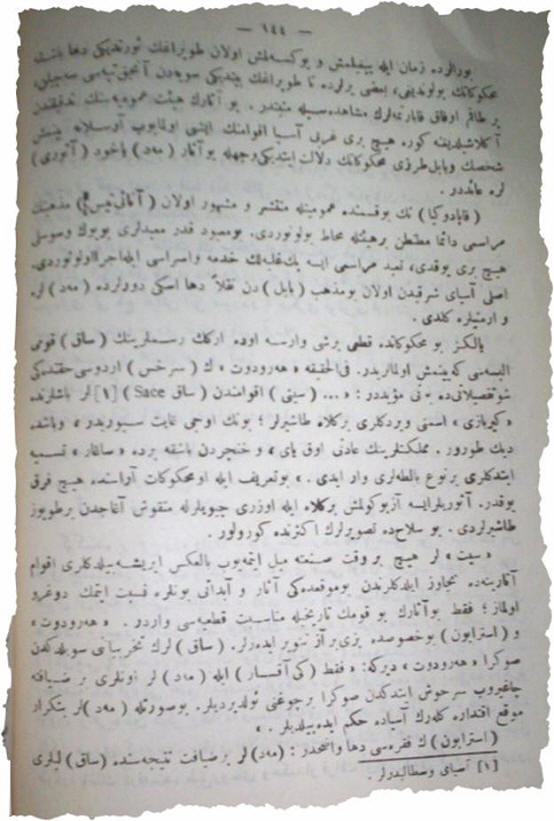 — ١٤٤ —
بورالرده زمان ايله ييغيلمش و يوكسلمش اولان طوپراغك ئورتديكى دها باشقه
محكوكاتك بولونديغى، بعضى يرلرده تا طوپراغك
بر طاقم اوفاق قبارتمه‌لرك مشاهده‌سيله مثبتدر. بو آثارك هيئت عموميه‌سنك تدقيقندن
آكلاشيلديغنه كوره هيچ برى غربى آسيا اقوامنك
شخصك وبابل طرزى محكوكاتك دلالت ايتديكى وجهله بو آثار (مه‌د) ياخود (آثورى)
لره عائددر.
(قاپادوكيا) نك بو قسمنده عموميتله منتشر و مشهور اولان (آنائى‌تيس) مذهبنك
مراسمى دائما مطنطن بر هيئتله محاط بولونوردى. بو معبود قدر معبدلرى بويوك وصوسلى
هيچ برى يوقدى، تعبد مراسمى ايسه پك غلبه‌لك خدمه واسراسى ايله اجرا اولونوردى.
اصلى آسياى شرقيدن اولان بو مذهب (بابل) دن نقلاً دها اسكى دورلرده (مه‌د) لره
و ارمنيلره كلدى.
يالكز بو محكوكاتده قطعى برشى وارسه اوده اركك رسملرينك (ساق) قومى
البسه‌سى كه‌يينمش اولمالريدر. فى‌الحقيقه «هه‌رودوت» ك (سرخس) اردوسى حقنده‌كى
شو تفصيلاتى ده بونى مؤيددر: «... (سيتى) اقوامندن (ساق Sace) [١] لر باشلرنده
«كيربازى» اسمنى ويردكلرى بر كلاه طاشيرلر؛ بونك اوجى غايت سيوريدر، وباشده
ديك طورور. مملكتلرينك عادتى اوق ياى، و خنجردن باشقه برده «ساغار» تسميه
ايتدكلرى برنوع بالطه‌لرى وار ايدى.» بو تعريف ايله او محكوكات آراسنده هيچ فرق
يوقدر. آثوريلر ايسه آز بوكولمش بر كلاه ايله اوزرى چيويلرله منقوش آغاجدن بر طوپوز
طاشيرلردى. بو سلاح ده تصويرلرك اكثرنده كورولور.
«سيت» لر هيچ بر وقت صنعته ميل ايتمه‌يوب بالعكس ايريشه‌بيلدكلرى اقوام
آثارينه‌ده تجاوز ايلدكلرندن بو موقعده‌كى آثار و آبداتى بونلره نسبت ايتمك دوغرو
اولماز؛ فقط بو آثارك بو قومك تاريخيله مناسبت قطعيه‌سى واردر. «هه‌رودوت»
و (استرابون) بو خصوصده بزى بر آز تنوير ايده‌رلر. (ساق) لرك تخريباتنى سويلدكدن
صوكرا «هه‌رودوت» ديركه: «فقط (كى آقسار) ايله (مه‌د) لر اونلرى بر ضيافته
چاغيروب سرخوش ايتدكدن صوكرا برچوغنى ئولديرديلر. بو صورتله (مه‌د) لر بتكرار
موقع اقتداره كله‌رك آسياده حكم ايده‌بيلديلر.»
(استرابون) ك فقره‌سى دها واضحدر: (مه‌د) لر بر ضيافت نتيجه‌سنده (ساق) ليلرى
[١] آسياى وسطاليدرلر.